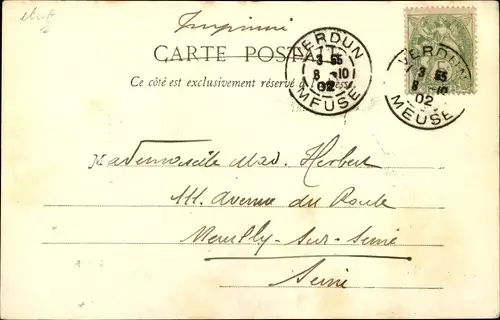 Imprimé
CARTE POSTALE
Ce côté est exclusivement réservé à l'adresse
VERDUN
3 55
8 - 10
02
MEUSE
VERDUN
3 55
8 10
02
MEUSE
Mademoiselle Mad. Herbert
111 Avenue du Roule
Neuilly-sur-Seine
Seine